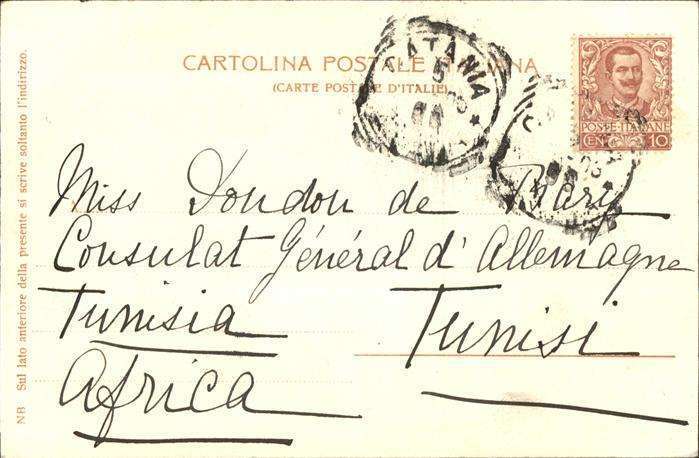 CARTOLINA POSTALE ITALIANA
(CARTE POSTALE D'ITALIE)
CATANIA
5
POSTE ITALIANE
CENT. 10
Miss Dondon de Bary
Consulat Général d'Allemagne
Tunisia Tunisi
Africa
NB Sul lato anteriore della presente si scrive soltanto l'indirizzo.